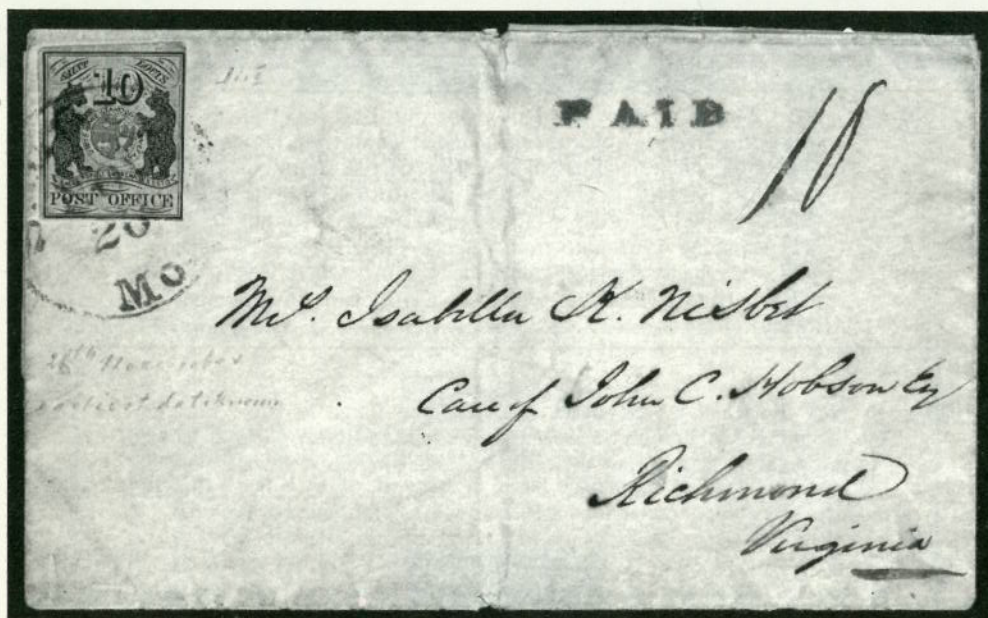 SAINT LOUIS
10
POST OFFICE
20
Mo
PAID
10
Mrs. Isabella K. Nisbet
Care of John C. Hobson Esq
Richmond
Virginia
earliest date known